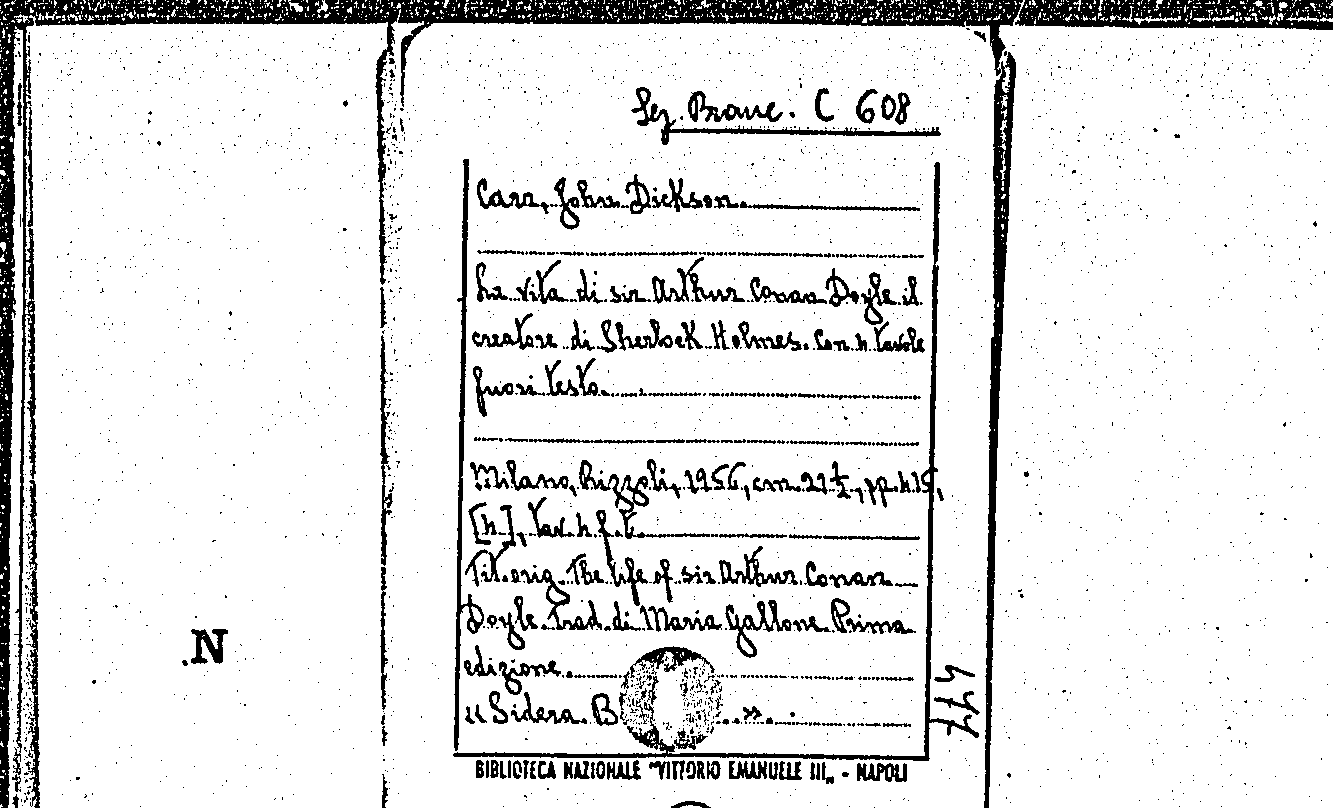 Sez. Branc. C 608
Carr, John Dickson.
La vita di sir Arthur Conan Doyle il
creatore di Sherlock Holmes. Con 4 tavole
fuori testo.
Milano, Rizzoli, 1956, cm. 21 ½, pp. 415,
[4], tav. 4 f. t.
Tit. orig. The life of sir Arthur Conan
Doyle. Trad. di Maria Gallone. Prima
edizione.
«Sidera. B ».
477
N
BIBLIOTECA NAZIONALE "VITTORIO EMANUELE III„ - NAPOLI